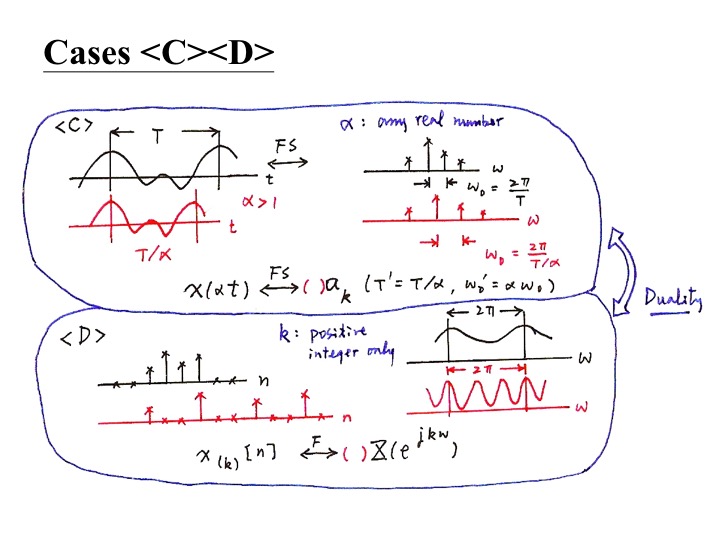 Cases <C><D>
<C>
α : any real number
T
FS
t
ω
ω₀ = 2π/T
α > 1
t
ω
T/α
ω₀ = 2π/(T/α)
x(αt) ⟷FS ( )aₖ (T' = T/α, ω₀' = αω₀)
Duality
<D>
k : positive integer only
2π
ω
n
2π
n
ω
x₍ₖ₎[n] ⟷F ( )X(e^{jkω})